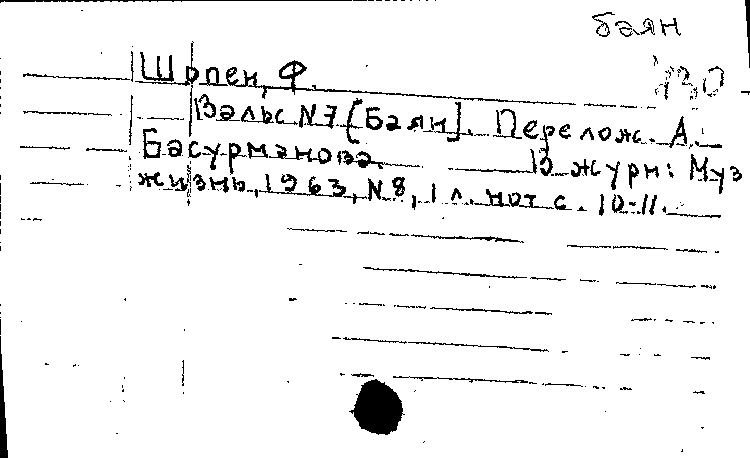 баян
130
Шопен, Ф.
Вальс N7 [Баян]. Перелож. А.
Басурманова. В журн: Муз
жизнь, 1963, N8, 1 л. нот с. 10-11.